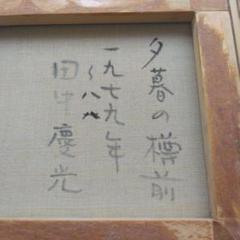 夕暮の樽前
一九七九年
〜八八
田中慶光